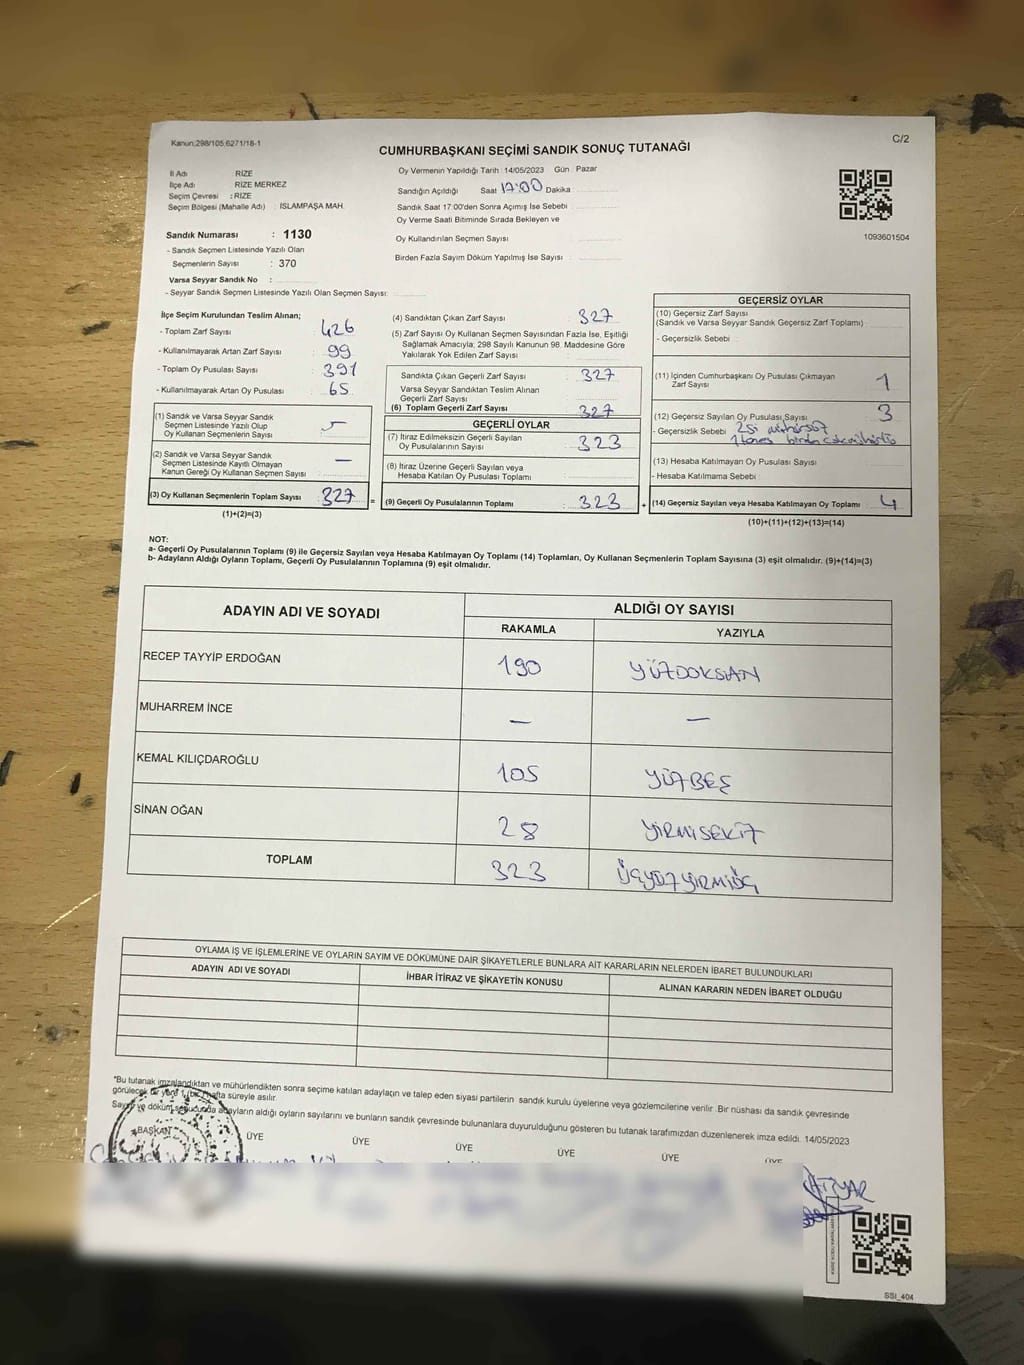 Kanun:298/105;6271/18-1
C/2
CUMHURBAŞKANI SEÇİMİ SANDIK SONUÇ TUTANAĞI
İl Adı RİZE
İlçe Adı RİZE MERKEZ
Seçim Çevresi : RİZE
Seçim Bölgesi (Mahalle Adı) : İSLAMPAŞA MAH.
Sandık Numarası : 1130
- Sandık Seçmen Listesinde Yazılı Olan
Seçmenlerin Sayısı : 370
Varsa Seyyar Sandık No :
- Seyyar Sandık Seçmen Listesinde Yazılı Olan Seçmen Sayısı:
Oy Vermenin Yapıldığı Tarih : 14/05/2023 Gün : Pazar
Sandığın Açıldığı Saat 17:00 Dakika
Sandık Saat 17:00'den Sonra Açımış İse Sebebi
Oy Verme Saati Bitiminde Sırada Bekleyen ve
Oy Kullandırılan Seçmen Sayısı
Birden Fazla Sayım Döküm Yapılmış İse Sayısı
1093601504
İlçe Seçim Kurulundan Teslim Alınan;
- Toplam Zarf Sayısı : 426
- Kullanılmayarak Artan Zarf Sayısı : 99
- Toplam Oy Pusulası Sayısı : 391
- Kullanılmayarak Artan Oy Pusulası : 65
(1) Sandık ve Varsa Seyyar Sandık
Seçmen Listesinde Yazılı Olup
Oy Kullanan Seçmenlerin Sayısı
(2) Sandık ve Varsa Seyyar Sandık
Seçmen Listesinde Kayıtlı Olmayan
Kanun Gereği Oy Kullanan Seçmen Sayısı —
(3) Oy Kullanan Seçmenlerin Toplam Sayısı : 327 =
(1)+(2)=(3)
(4) Sandıktan Çıkan Zarf Sayısı : 327
(5) Zarf Sayısı Oy Kullanan Seçmen Sayısından Fazla İse, Eşitliği
Sağlamak Amacıyla; 298 Sayılı Kanunun 98. Maddesine Göre
Yakılarak Yok Edilen Zarf Sayısı
Sandıkta Çıkan Geçerli Zarf Sayısı : 327
Varsa Seyyar Sandıktan Teslim Alınan
Geçerli Zarf Sayısı
(6) Toplam Geçerli Zarf Sayısı : 327
GEÇERLİ OYLAR
(7) İtiraz Edilmeksizin Geçerli Sayılan
Oy Pusulalarının Sayısı : 323
(8) İtiraz Üzerine Geçerli Sayılan veya
Hesaba Katılan Oy Pusulaları Toplamı
(9) Geçerli Oy Pusulalarının Toplamı : 323 +
GEÇERSİZ OYLAR
(10) Geçersiz Zarf Sayısı
(Sandık ve Varsa Seyyar Sandık Geçersiz Zarf Toplamı)
- Geçersizlik Sebebi
(11) İçinden Cumhurbaşkanı Oy Pusulası Çıkmayan
Zarf Sayısı 1
(12) Geçersiz Sayılan Oy Pusulası Sayısı 3
- Geçersizlik Sebebi 2si mühürsüz
1 birden
(13) Hesaba Katılmayan Oy Pusulası Sayısı
- Hesaba Katılmama Sebebi
(14) Geçersiz Sayılan veya Hesaba Katılmayan Oy Toplamı 4
(10)+(11)+(12)+(13)=(14)
NOT:
a- Geçerli Oy Pusulalarının Toplamı (9) ile Geçersiz Sayılan veya Hesaba Katılmayan Oy Toplamı (14) Toplamları, Oy Kullanan Seçmenlerin Toplam Sayısına (3) eşit olmalıdır. (9)+(14)=(3)
b- Adayların Aldığı Oyların Toplamı, Geçerli Oy Pusulalarının Toplamına (9) eşit olmalıdır.
ADAYIN ADI VE SOYADI ALDIĞI OY SAYISI
RAKAMLA YAZIYLA
RECEP TAYYİP ERDOĞAN 190 YÜZDOKSAN
MUHARREM İNCE — —
KEMAL KILIÇDAROĞLU 105 YÜZBEŞ
SİNAN OĞAN 28 YİRMİSEKİZ
TOPLAM 323 ÜÇYÜZYİRMİÜÇ
OYLAMA İŞ VE İŞLEMLERİNE VE OYLARIN SAYIM VE DÖKÜMÜNE DAİR ŞİKAYETLERLE BUNLARA AİT KARARLARIN NELERDEN İBARET BULUNDUKLARI
ADAYIN ADI VE SOYADI İHBAR İTİRAZ VE ŞİKAYETİN KONUSU ALINAN KARARIN NEDEN İBARET OLDUĞU
*Bu tutanak imzalandıktan ve mühürlendikten sonra seçime katılan adayların ve talep eden siyasi partilerin sandık kurulu üyelerine veya gözlemcilerine verilir .Bir nüshası da sandık çevresinde
görülecek bir yere 1 (bir) hafta süreyle asılır.
Sayım ve döküm sonucunda adayların aldığı oyların sayılarını ve bunların sandık çevresinde bulunanlara duyurulduğunu gösteren bu tutanak tarafımızdan düzenlenerek imza edildi. 14/05/2023
BAŞKAN ÜYE ÜYE ÜYE ÜYE ÜYE ÜYE
SSI_404